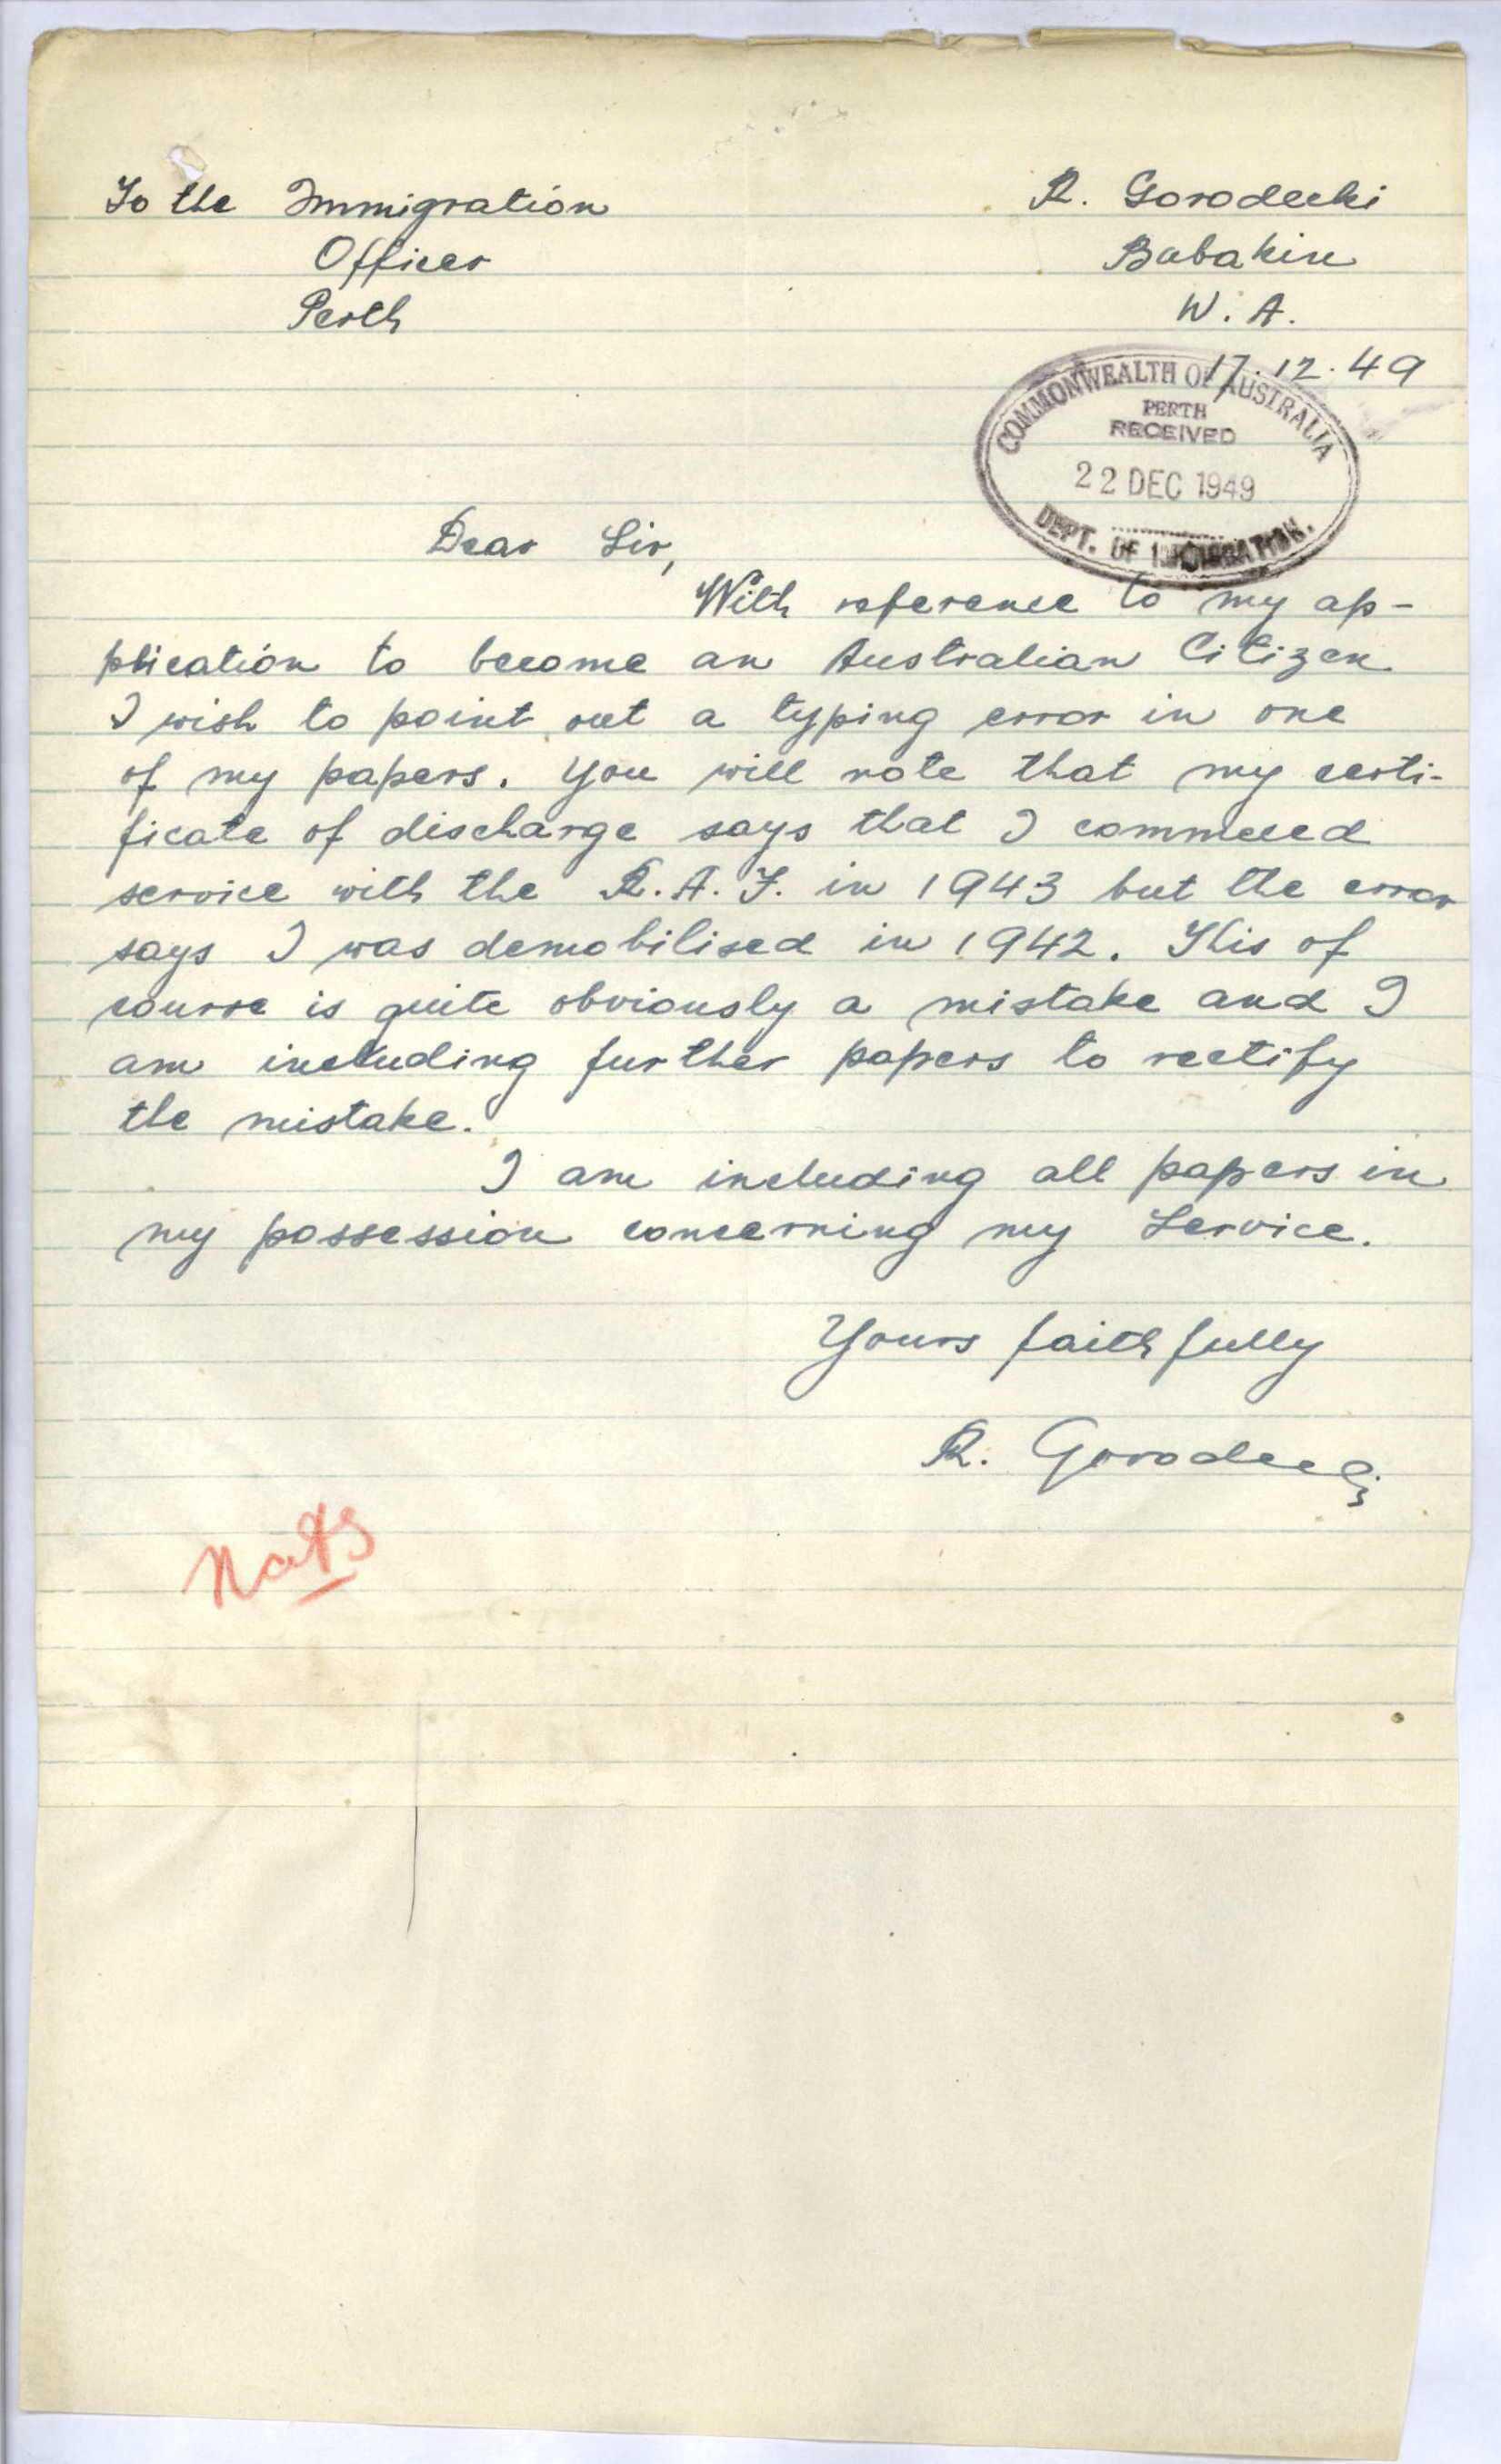 To the Immigration
Officer
Perth
R. Gorodecki
Babakin
W. A.
17.12.49
COMMONWEALTH OF AUSTRALIA
PERTH
RECEIVED
22 DEC 1949
DEPT. OF IMMIGRATION.
Dear Sir,
With reference to my ap-
plication to become an Australian Citizen
I wish to point out a typing error in one
of my papers. You will note that my certi-
ficate of discharge says that I commeced
service with the R.A.F. in 1943 but the error
says I was demobilised in 1942. This of
course is quite obviously a mistake and I
am including further papers to rectify
the mistake.
I am including all papers in
my possession concerning my Service.
Yours faithfully
R. Gorodecki